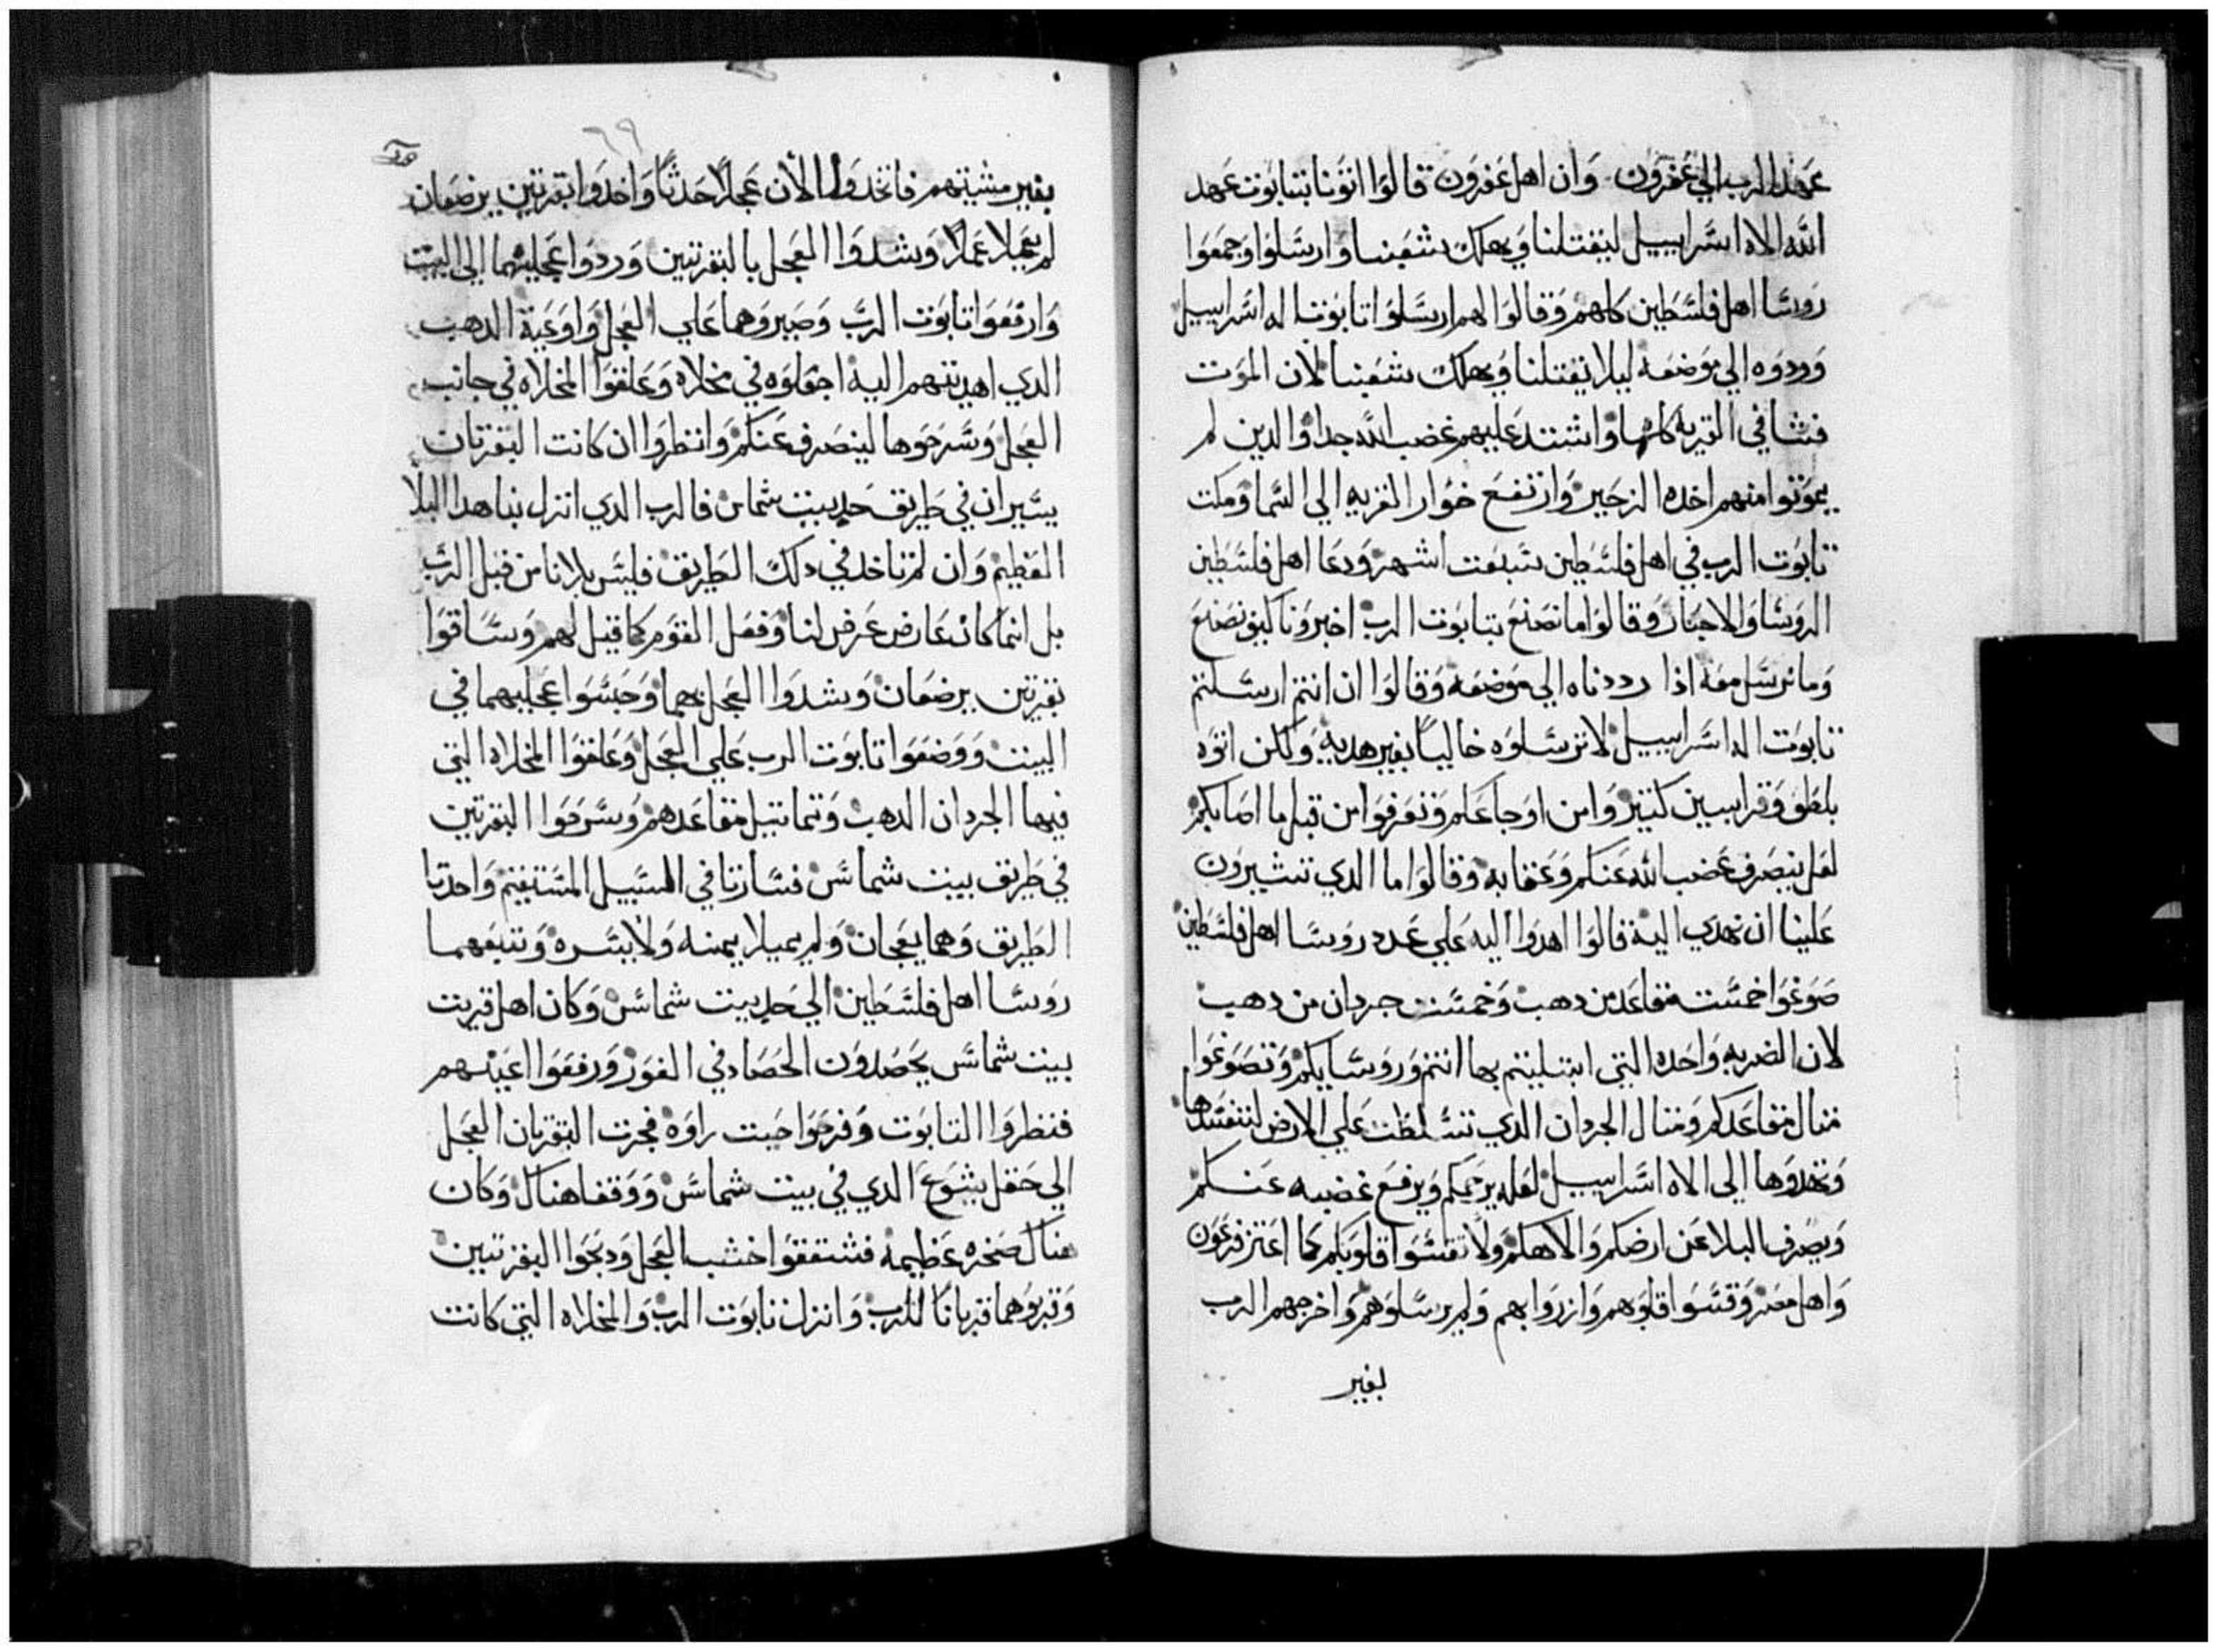 عهد الرب الي عفرون وان اهل عفرون قالوا اتونا بتابوت عهد
الله الاه اسراييل ليقتلنا ويهلك شعبنا وارسلوا وجمعوا
روسا اهل فلسطين كلهم وقالوا لهم ارسلوا تابوت اله اسراييل
وردوه الي موضعه ليلا يقتلنا ويهلك شعبنا لان الموت
فشا في القريه كلها واشتد عليهم غضب الله جدا والدين لم
يموتوا منهم اخده الزحير وارتفع خوار القريه الي السما ومكت
تابوت الرب في اهل فلسطين سبعت اشهر ودعا اهل فلسطين
الروسا والاحبار وقالوا ما نصنع بتابوت الرب اخبرونا كيف نصنع
وما نرسل معه اذا رددناه الي موضعه وقالوا ان انتم ارسلتم
تابوت اله اسراييل لا ترسلوه خاليا بغير هديه ولكن اتوه
بلطف وقرابين كتيره وامن اوجاعكم وتعرفوا من قبل ما اصابكم
لعل ينصرف غضب الله عنكم وعقابه وقالوا ما الدي تشيرون
علينا ان نهدي اليه قالوا اهدوا اليه علي عدد روسا اهل فلسطين
صوغوا خمست مقاعد من دهب وخمست جردان من دهب
لان الضربه واحده التي ابتليتم بها انتم وروسايكم وتصوغوا
متال مقاعدكم ومتال الجردان الدي تسلطت علي الارض لتفسدها
وتهدوها الي الاه اسراييل لعله يرحمكم ويرفع غضبه عنكم
ويصرف البلا عن ارضكم والاهكم ولا تقسوا قلوبكم كما اعتز فرعون
واهل مصر وقسوا قلوبهم وازروا بهم ولم يرسلوهم واخرجهم الرب
بغير
٦٩
بغير مشيتهم فاتخدوا الان عجلا حدثا واخدوا بقرتين يرضعان
لم يعملا عملا وشدوا العجل بالبقرتين وردوا عجليهما الي البيت
وارفعوا تابوت الرب وصيروهما علي العجل واوعية الدهب
الدي اهديتهم اليه اجعلوه في مخلاه وعلقوا المخلاه في جانب
العجل وسرحوها لينصرف عنكم وانظروا ان كانت البقرتان
يسيران في طريق حد بيت شماس فالرب الدي انزل بنا هدا البلا
العظيم وان لم تاخد في دلك الطريق فليس بلانا من قبل الرب
بل انما كان عارض عرض لنا وفعل القوم كما قيل لهم وساقوا
بقرتين يرضعان وشدوا العجل بهما وحبسوا عجليهما في
البيت ووضعوا تابوت الرب علي العجل وعلقوا المخلاه التي
فيها الجردان الدهب وتماتيل مقاعدهم وسرحوا البقرتين
في طريق بيت شماس فسارتا في السبيل المستقيم واحدتا
الطريق وهما يعجان ولم يميلا يمنه ولا يسره وتتبعهما
روسا اهل فلسطين الي حد بيت شماس وكان اهل قريت
بيت شماس يحصدون الحصاد في الغور ورفعوا اعينهم
فنظروا التابوت وفرحوا حيت راوه فجرت البقرتان العجل
الي حقل يشوع الدي في بيت شماس ووقفا هناك وكان
هناك صخره عظيمه فشققوا خشب العجل ودبحوا البقرتين
وقربوهما قربانا للرب وانزل تابوت الرب والمخلاه التي كانت